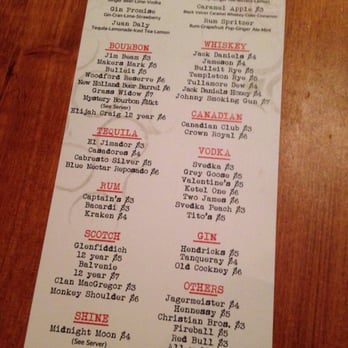 Ginger Beer-Lime-Vodka
Gin Promise
Gin-Cran-Lime-Strawberry
Juan Daly
Tequila-Lemonade-Iced Tea-Lemon
BOURBON
Jim Beam $3
Makers Mark $5
Bulleit $5
Woodford Reserve $6
New Holland Beer Barrel $6
Grass Widow $7
Mystery Bourbon $Mkt
(See Server)
Elijah Craig 12 year $6
TEQUILA
El Jimador $3
Casadores $4
Cabresto Silver $5
Blue Nectar Reposado $6
RUM
Captain's $3
Bacardi $3
Kraken $4
SCOTCH
Glenfiddich
12 year $5
Balvenie
12 year $7
Clan MacGregor $3
Monkey Shoulder $6
SHINE
Midnight Moon $4
(See Server)
Caramel Apple $3
Rum Spritzer
Rum-Grapefruit Pop-Ginger Ale-Mint
WHISKEY
Jack Daniels $4
Jameson $4
Bulleit Rye $5
Templeton Rye $5
Tullamore Dew $4
Jack Daniels Honey $4
Johnny Smoking Gun $7
CANADIAN
Canadian Club $3
Crown Royal $6
VODKA
Svedka $3
Grey Goose $5
Valentine's $5
Ketel One $6
Two James $6
Svedka Peach $3
Tito's $5
GIN
Hendricks $5
Tanqueray $5
Old Cockney $6
OTHERS
Jagermeister $4
Hennessy $5
Christian Bros. $3
Fireball $5
Red Bull $3